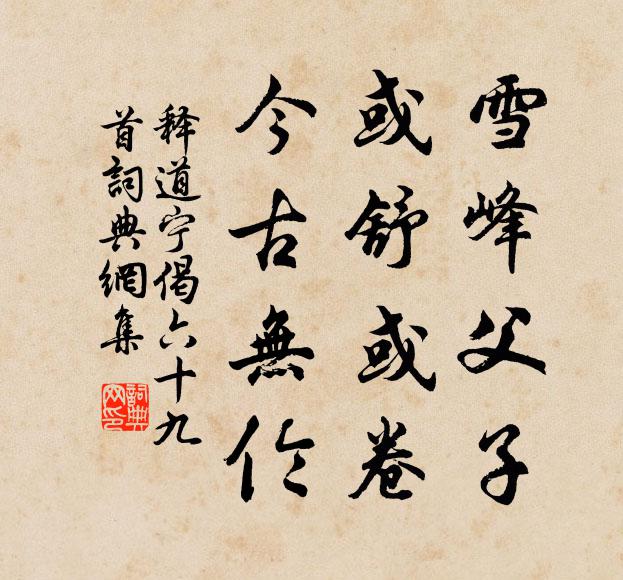 雪峰父子
或舒或卷
今古無倫
释道宁偈六十九
首詞典網集
詞典
网印